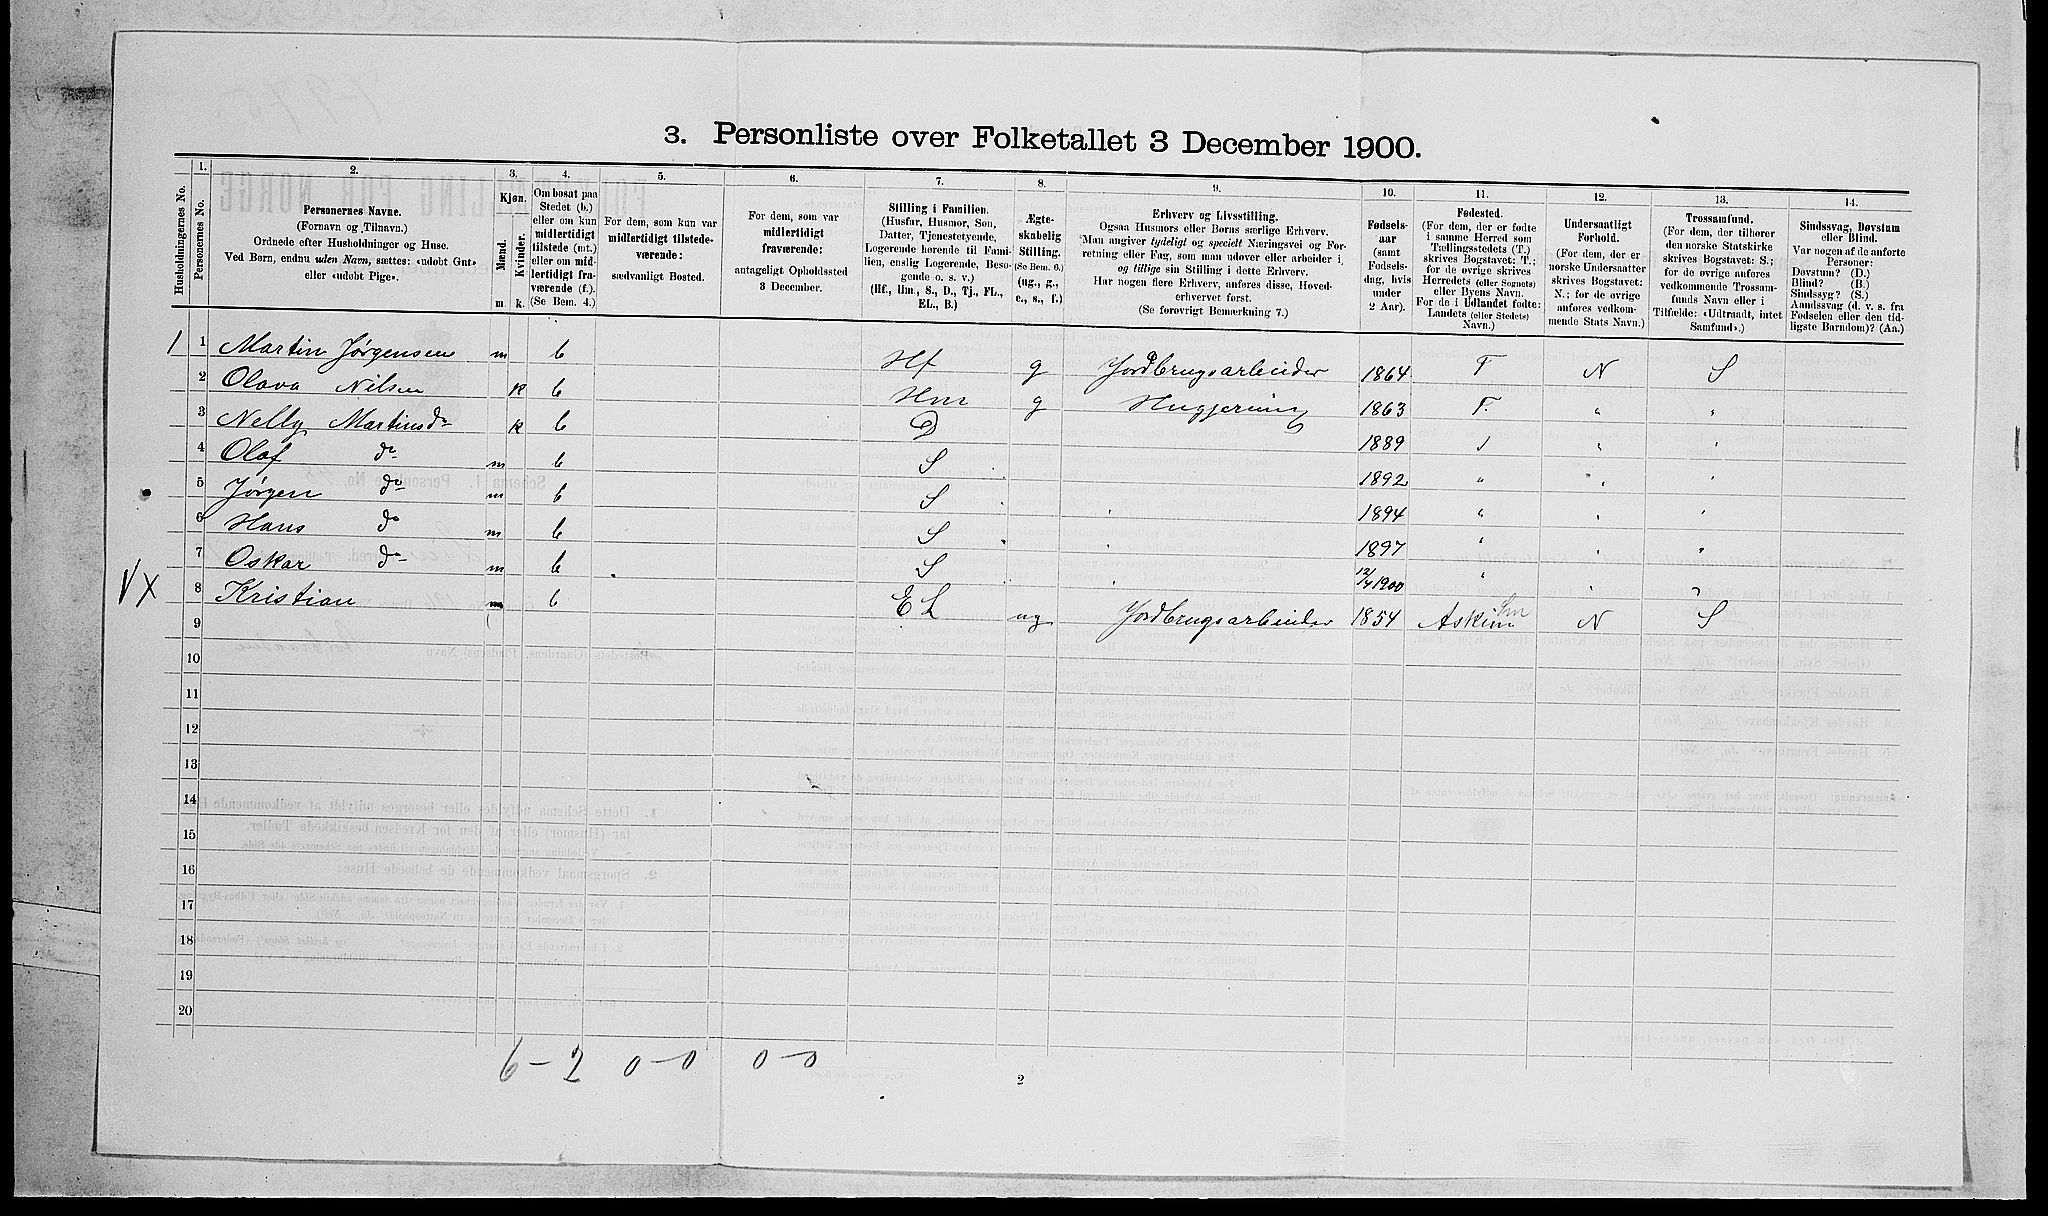 3. Personliste over Folketallet 3 December 1900.
Husholdningernes No.
1.
Personernes No.
2.
Personernes Navne.
(Fornavn og Tilnavn.)
Ordnede efter Husholdninger og Huse.
Ved Børn, endnu uden Navn, sættes: «udøbt Gut»
eller «udøbt Pige».
3.
Kjøn.
Mænd.
Kvinder.
m. k.
4.
Om bosat paa
Stedet (b.)
eller om kun
midlertidigt
tilstede (mt.)
eller om mid-
lertidigt fra-
værende (f.).
(Se Bem. 4.)
5.
For dem, som kun var
midlertidigt tilstede-
værende:
sædvanligt Bosted.
6.
For dem, som var
midlertidigt
fraværende:
antageligt Opholdssted
3 December.
7.
Stilling i Familien.
(Husfar, Husmor, Søn,
Datter, Tjenestetyende,
Logerende hørende til Fami-
lien, enslig Logerende, Besø-
gende o. s. v.)
(Hf., Hm., S., D., Tj., FL.,
EL., B.)
8.
Ægte-
skabelig
Stilling.
(Se Bem. 6.)
(ug., g.,
e., s., f.)
9.
Erhverv og Livsstilling.
Ogsaa Husmors eller Børns særlige Erhverv.
Man angiver tydeligt og specielt Næringsvei og For-
retning eller Fag, som man udøver eller arbeider i,
og tillige sin Stilling i dette Erhverv.
Har nogen flere Erhverv, anføres disse, Hoved-
erhvervet først.
(Se forøvrigt Bemærkning 7.)
10.
Fødsels-
aar
(samt
Fødsels-
dag, hvis
under
2 Aar).
11.
Fødested.
(For dem, der er fødte
i samme Herred som
Tællingsstedets (T.)
skrives Bogstavet: T.;
for de øvrige skrives
Herredets (eller Sognets)
eller Byens Navn.
For de i Udlandet fødte:
Landets (eller Stedets)
Navn.)
12.
Undersaatligt
Forhold.
(For dem, der er
norske Undersaatter
skrives Bogstavet:
N.; for de øvrige
anføres vedkom-
mende Stats Navn.)
13.
Trossamfund.
(For dem, der tilhører
den norske Statskirke
skrives Bogstavet: S.;
for de øvrige anføres
vedkommende Trossam-
funds Navn eller i
Tilfælde: «Udtraadt, intet
Samfund».)
14.
Sindssvag, Døvstum
eller Blind.
Var nogen af de anførte
Personer:
Døvstum? (D.)
Blind? (B.)
Sindssyg? (S.)
Aandssvag (d. v. s. fra
Fødselen eller den tid-
ligste Barndom)? (Aa.)
1 1 Martin Jørgensen m b Hf g Jordbrugsarbeider 1864 T N S
2 Olava Nilsen k b Hm g Husgjerning 1863 T. " "
3 Nelly Martinsd. k b D 1889 " "
4 Olaf do m b S 1892 " " "
5 Jørgen do m b S 1894 " " "
6 Hans do m b S 1897 " " "
7 Oskar do m b S 12/4 1900 " " "
VX 8 Kristian m b EL ug Jordbrugsarbeider 1854 Askim Sm N S
9
10
11
12
13
14
15
16
17
18
19
20
2